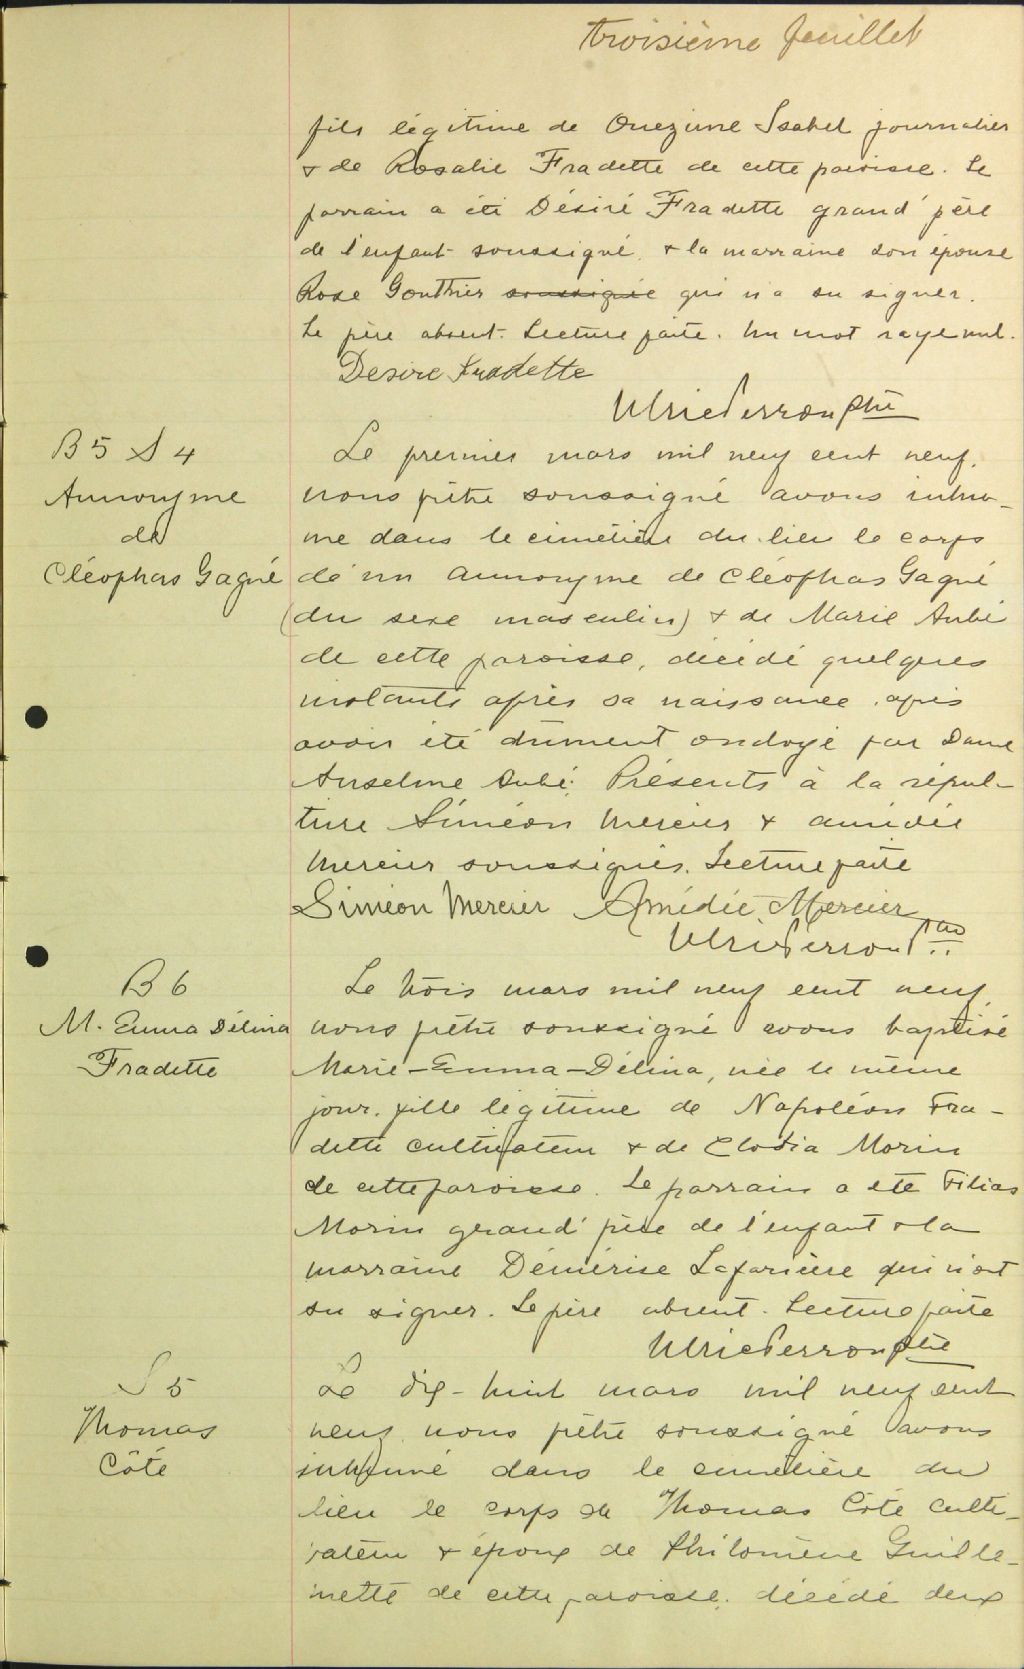 troisième feuillet
fils légitime de Onezime Isabel journalier
& de Rosalie Fradette de cette paroisse. Le
parrain a été Désiré Fradette grand'père
de l'enfant soussigné & la marraine son épouse
Rose Gonthier soussignée qui n'a su signer.
Le père absent. Lecture faite. Un mot rayé nul.
Desire Fradette
Ulric Perron ptre
B5 S4
Annonyme
de
Cléophas Gagné
Le premier mars mil neuf cent neuf,
nous prêtre soussigné avons inhu-
mé dans le cimétière du lieu le corps
de un annonyme de Cléophas Gagné
(du sexe masculin) & de Marie Aubé
de cette paroisse, décédé quelques
instants après sa naissance après
avoir été dûment ondoyé par Dame
Anselme Aubé. Présents à la sépul-
ture Siméon Mercier & Amédée
Mercier soussignés. Lecture faite
Siméon Mercier Amédée Mercier
Ulric Perron Ptre
B6
M. Emma Délina
Fradette
Le trois mars mil neuf cent neuf,
nous prêtre soussigné avons baptisé
Marie-Emma-Délina, née le même
jour, fille légitime de Napoléon Fra-
dette cultivateur & de Clodia Morin
de cette paroisse. Le parrain a été Filias
Morin grand'père de l'enfant & la
marraine Démérise Laferrière qui n'ont
su signer. Le père absent. Lecture faite
Ulric Perron ptre
S5
Thomas
Côté
Le dix-huit mars mil neuf cent
neuf, nous prêtre soussigné avons
inhumé dans le cimetière du
lieu le corps de Thomas Côté culti-
vateur & époux de Philomène Guille-
mette de cette paroisse, décédé deux